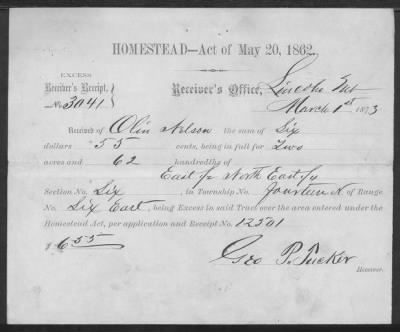 HOMESTEAD—Act of May 20, 1862.
EXCESS
Receiver's Receipt,
No. 3041
Receiver's Office, Lincoln Neb
March 1st 1873
Received of Olin Nelson the sum of Six
dollars 55 cents, being in full for Two
acres and 62 hundredths of
East ½ North East ¼
Section No. Six, in Township No. Fourteen N. of Range
No. Six East, being Excess in said Tract over the area entered under
Homestead Act, per application and Receipt No. 12501
$6 55
Geo P. Tucker
Receiver.